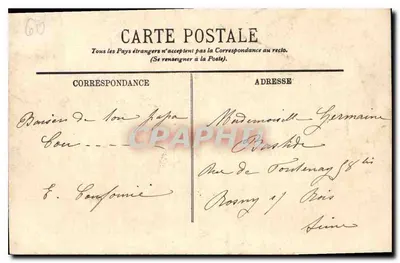 60
CARTE POSTALE
Tous les Pays étrangers n'acceptent pas la Correspondance au recto.
(Se renseigner à la Poste).
CORRESPONDANCE
Baisers de ton papa
E.
ADRESSE
Mademoiselle Germaine
Rue de Fontenay 58 bis
Rosny s/ Bois
Seine
CPAPHIL